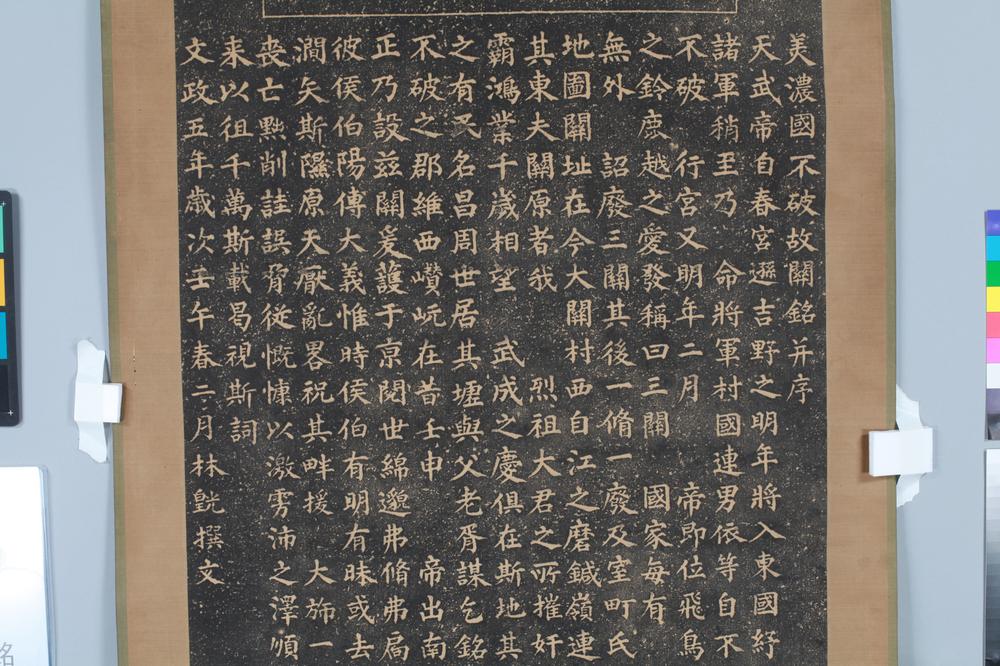 美濃國不破故關銘并序
天武帝自春宮遜吉野之明年將入東國紓
諸軍稍至乃 命將軍村國連男依等自不
不破 行宮又明年二月 帝即位飛鳥
之鈴鹿越之愛發稱曰三關 國家每有
無外 詔廢三關其後一脩一廢及室町氏
地圖關址在今大關村西自江之磨鍼嶺連
其東大關原者我 烈祖大君之所摧奸
霸鴻業千歲相望 武成之慶俱在斯地其
之有民名昌周世居其壥與父老胥謀乞銘
不破之郡維西巑岏在昔壬申 帝出南
正乃設茲關爰護于京閱世綿邈弗脩弗扃
彼侯伯陽傳大義惟時侯伯有明有昧或去
澗矣斯隰原天厭亂畧祝其畔援 大旆一
喪亡黜削詿誤脅從慨慷以激雱沛之澤順
来以徂千萬斯載曷視斯詞
文政五年歲次壬午春二月林 撰文
銘